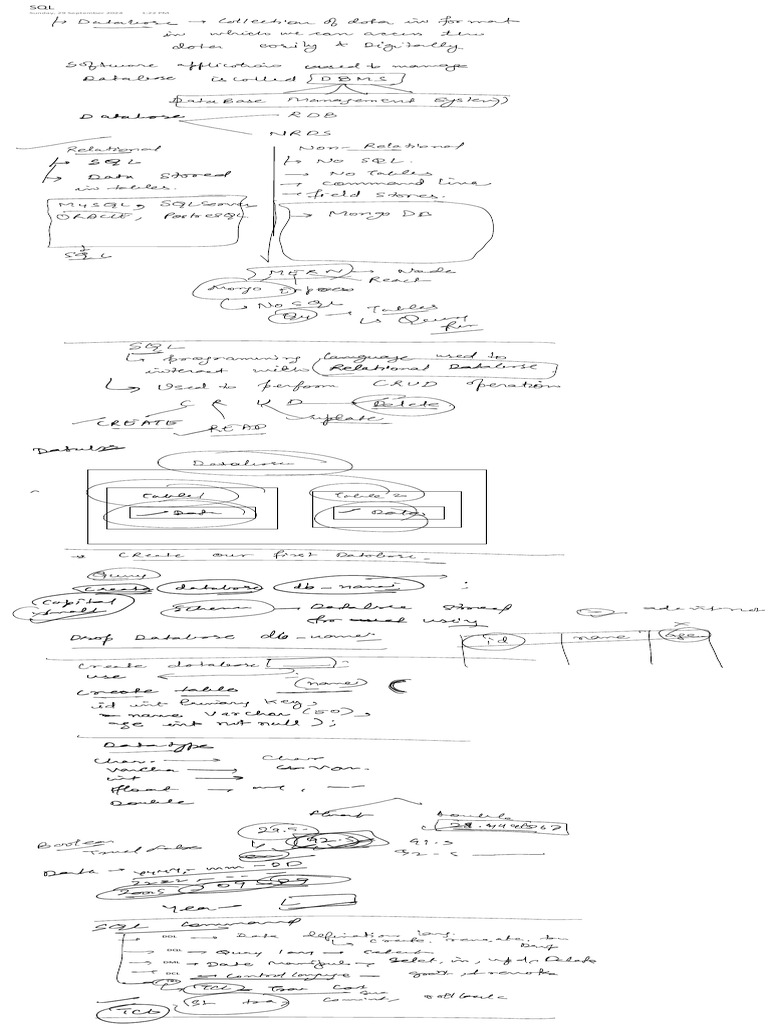 SQL
Sunday, 29 September 2024 1:22 PM
↳ Database → Collection of data in format
in which we can access
data easily & Digitally
Software application used to manage
Database is called DBMS
DataBase Management System)
Database RDB
NRDS
Relational Non-Relational
↳ SQL ↳ No SQL.
↳ Data Stored → No Tables
in tables. → Command line
→ field stores.
MySQL, SQLServer → Mongo DB
ORACLE, PostgreSQL
SQL
MERN → Node
React
Mongo Express
↳ No SQL
→ Tables
↳ Query
SQL
↳ Programming language used to
interact with Relational Database
↳ Used to perform CRUD operation
C R U D Delete
CREATE READ update
Database
Table 1 Table 2
Data Data
→ Create our first Database.
Query
Create database db_name ;
Capital
small Schema → Database stored
for using
Drop Database db_name
id name age
Create database
use
Create table (name) (
id int Primary Key,
name Varchar (50),
age int not null);
Datatype
Char → Char
Varchar →
int →
float →
Double
float Double
29.5
92.5 91.5
Boolean
True/False
Date → YYYY-MM-DD
2005-09-09
Year →
SQL Command
DDL → Data definition lang.
↳ Create, Truncate,
Drop
DQL → Query lang → Select
DML → Date Manipul → Select, in, upd, Delete
DCL → Control language →
TCL
TCL commit, rollback